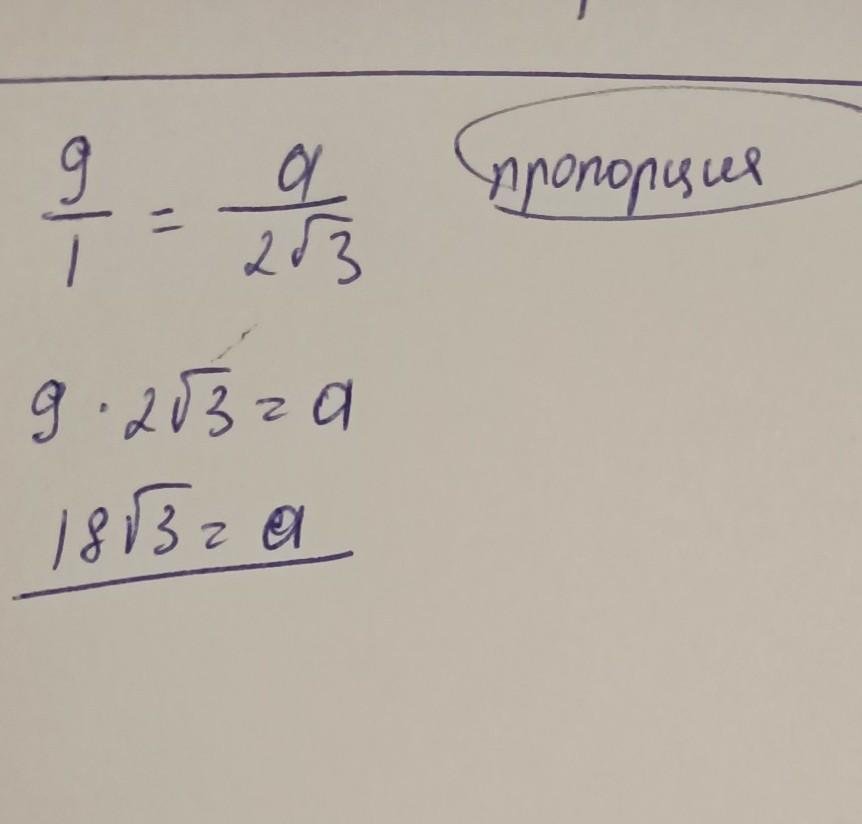 9/1 = a/2√3
пропорция
9 · 2√3 = a
18√3 = a